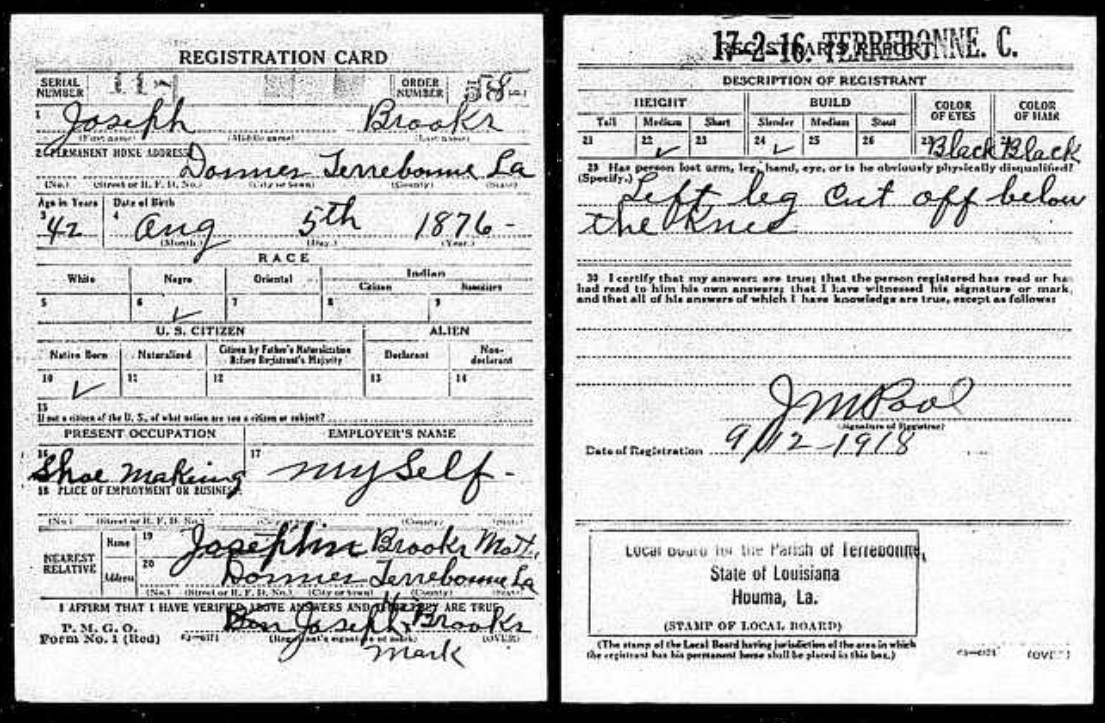 REGISTRATION CARD
SERIAL NUMBER
ORDER NUMBER 58
1 Joseph Brooks
(First name) (Middle name) (Last name)
2 PERMANENT HOME ADDRESS: Donner Terrebonne La
(No.) (Street or R. F. D. No.) (City or town) (County) (State)
Age in Years Date of Birth
3 42 4 Aug 5th 1876-
(Month.) (Day.) (Year.)
RACE
White Negro Oriental Indian
Citizen Noncitizen
5 6 ✓ 7 8 9
U. S. CITIZEN ALIEN
Native Born Naturalized Citizen by Father's Naturalization Before Registrant's Majority Declarant Non-declarant
10 ✓ 11 12 13 14
15
If not a citizen of the U. S., of what nation are you a citizen or subject?
PRESENT OCCUPATION EMPLOYER'S NAME
16 Shoe Making 17 my Self -
18 PLACE OF EMPLOYMENT OR BUSINESS:
(No.) (Street or R. F. D. No.) (City or town) (County) (State)
NEAREST RELATIVE
Name 19 Josephin Brooks Mott.
Address 20 Donner Terrebonne La
(No.) (Street or R. F. D. No.) (City or town) (County) (State)
I AFFIRM THAT I HAVE VERIFIED ABOVE ANSWERS AND THAT THEY ARE TRUE
P. M. G. O.
Form No. 1 (Red) Joseph Brooks
(Registrant's signature or mark) (OVER)
mark
17-2-16. TERREBONNE. C.
REGISTRAR'S REPORT
DESCRIPTION OF REGISTRANT
HEIGHT BUILD COLOR OF EYES COLOR OF HAIR
Tall Medium Short Slender Medium Stout
21 22 ✓ 23 24 ✓ 25 26 27 Black 28 Black
29 Has person lost arm, leg, hand, eye, or is he obviously physically disqualified?
(Specify.) Left leg Cut off below
the Knee
30 I certify that my answers are true; that the person registered has read or has
had read to him his own answers; that I have witnessed his signature or mark,
and that all of his answers of which I have knowledge are true, except as follows:
J M Pool
(Signature of Registrar)
Date of Registration 9/12-1918
Local Board for the Parish of Terrebonne,
State of Louisiana
Houma, La.
(STAMP OF LOCAL BOARD)
(The stamp of the Local Board having jurisdiction of the area in which
the registrant has his permanent home shall be placed in this box.)
(OVER)